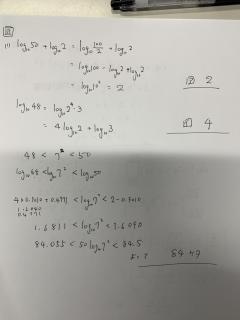 (1) log₁₀50 + log₁₀2 = log₁₀ 100/2 + log₁₀2
= log₁₀100 - log₁₀2 + log₁₀2
= log₁₀10² = 2
2
log₁₀48 = log₁₀2⁴·3
= 4log₁₀2 + log₁₀3
4
48 < 7² < 50
log₁₀48 < log₁₀7² < log₁₀50
4×0.3010 + 0.4771 < log₁₀7² < 2-0.3010
1.2040
0.4771
1.6811 < log₁₀7² < 1.6990
84.055 < 50log₁₀7² <